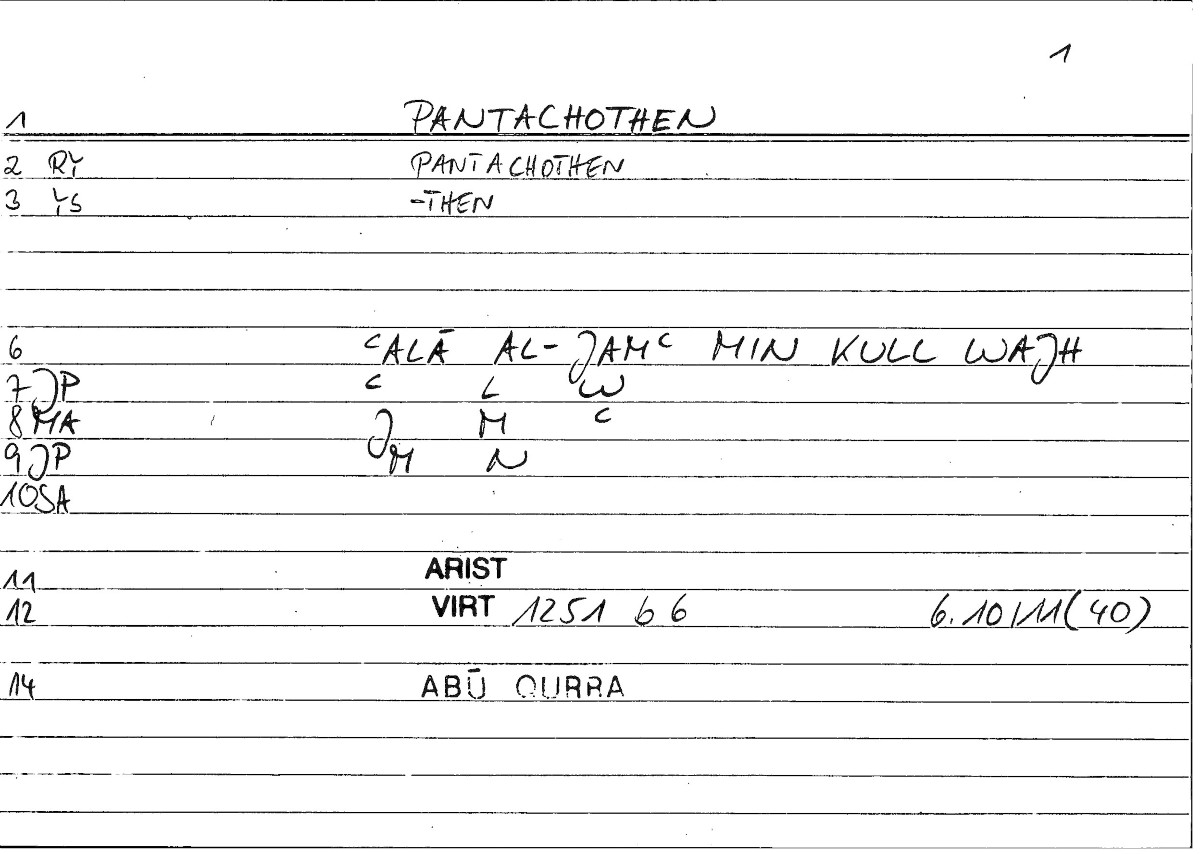 1
1 PANTACHOTHEN
2 RY PANTACHOTHEN
3 YS -THEN
6 ᶜALĀ AL-JAMᶜ MIN KULL WAJH
7 JP ᶜ L W
8 MA J M ᶜ
9 JP M N
10 SA
11 ARIST
12 VIRT 1251 b 6 6.10/11(40)
14 ABŪ QURRA